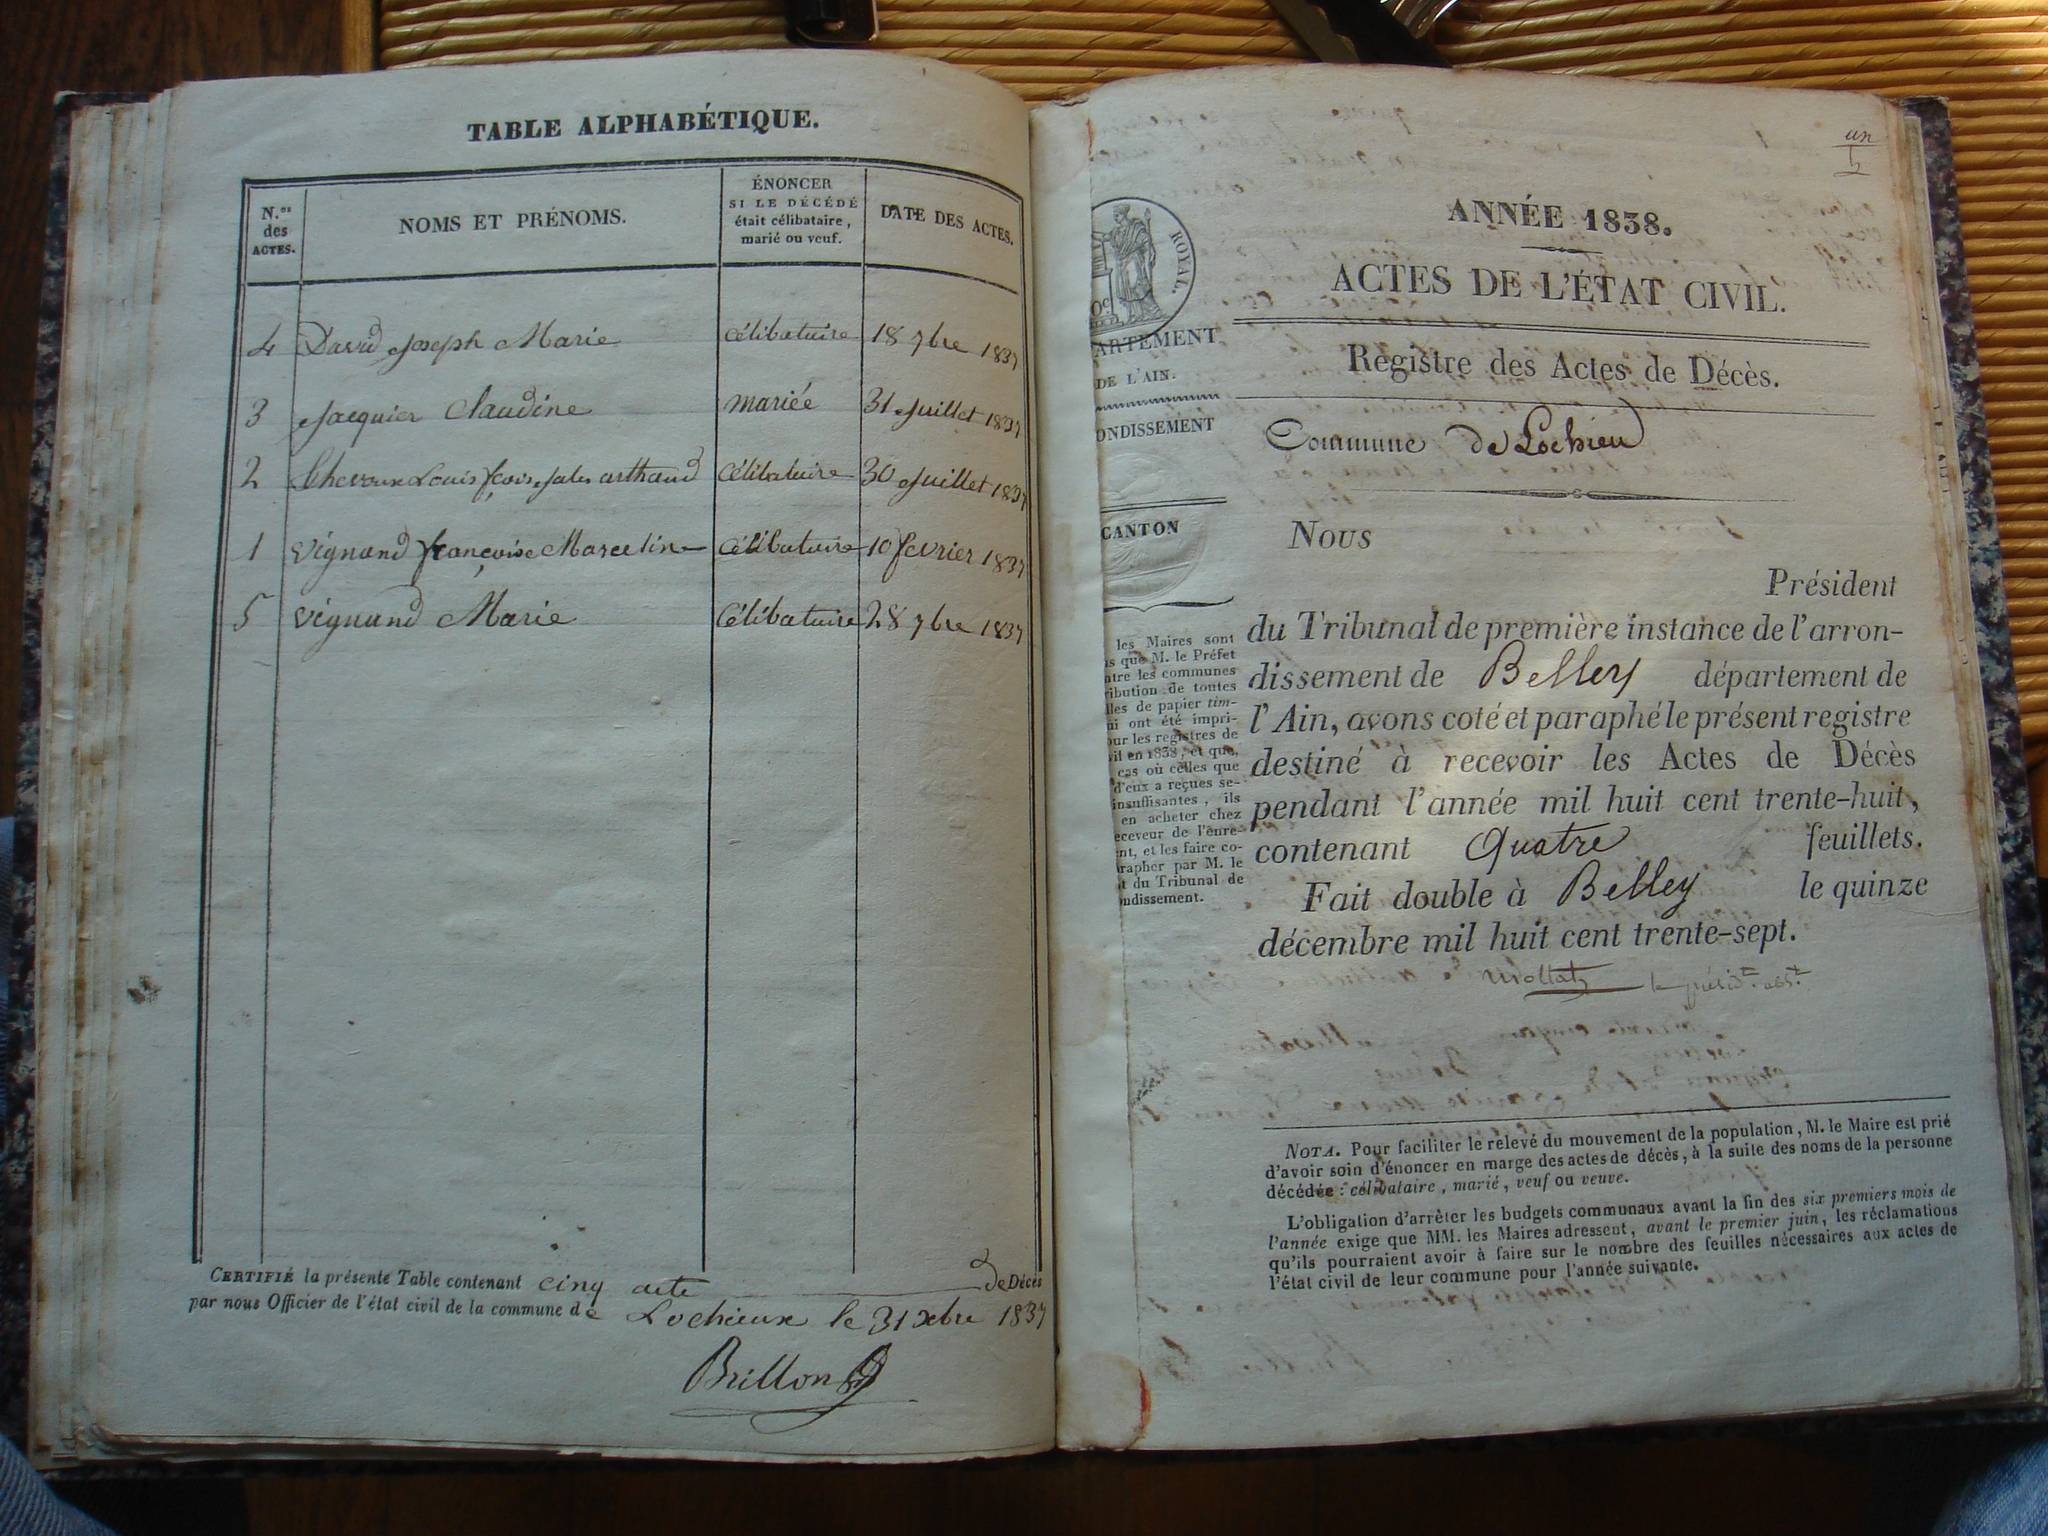 TABLE ALPHABÉTIQUE.
N.os des ACTES.
NOMS ET PRÉNOMS.
ÉNONCER
SI LE DÉCÉDÉ
était célibataire,
marié ou veuf.
DATE DES ACTES.
4 David Joseph Marie célibataire 18 7bre 1837
3 Jacquier Claudine mariée 31 Juillet 1837
2 Chevaux Louis fcois Jules arthaud célibataire 30 Juillet 1837
1 vignand françoise Marceline célibataire 10 fevrier 1837
5 vignand Marie célibataire 28 7bre 1837
CERTIFIÉ la présente Table contenant cinq acte de Décès
par nous Officier de l'état civil de la commune de Lochieux le 31 xbre 1837
Brillon
un
ANNÉE 1838.
ACTES DE L'ÉTAT CIVIL.
ROYAL.
ARTEMENT
DE L'AIN.
ONDISSEMENT
CANTON
Registre des Actes de Décès.
Commune de Lochieu
Nous
Président
du Tribunal de première instance de l'arron-
dissement de Belley département de
l'Ain, avons coté et paraphé le présent registre
destiné à recevoir les Actes de Décès
pendant l'année mil huit cent trente-huit,
contenant Quatre feuillets.
Fait double à Belley le quinze
décembre mil huit cent trente-sept.
Mollet le présidt. abst.
les Maires sont
s que M. le Préfet
ntre les communes
ribution de toutes
lles de papier tim-
ui ont été impri-
our les registres de
vil en 1838, et que,
cas où celles que
d'eux a reçues se-
insuffisantes, ils
en acheter chez
eceveur de l'enre-
nt, et les faire co-
rapher par M. le
t du Tribunal de
ondissement.
NOTA. Pour faciliter le relevé du mouvement de la population, M. le Maire est prié
d'avoir soin d'énoncer en marge des actes de décès, à la suite des noms de la personne
décédée : célibataire, marié, veuf ou veuve.
L'obligation d'arrêter les budgets communaux avant la fin des six premiers mois de
l'année exige que MM. les Maires adressent, avant le premier juin, les réclamations
qu'ils pourraient avoir à faire sur le nombre des feuilles nécessaires aux actes de
l'état civil de leur commune pour l'année suivante.